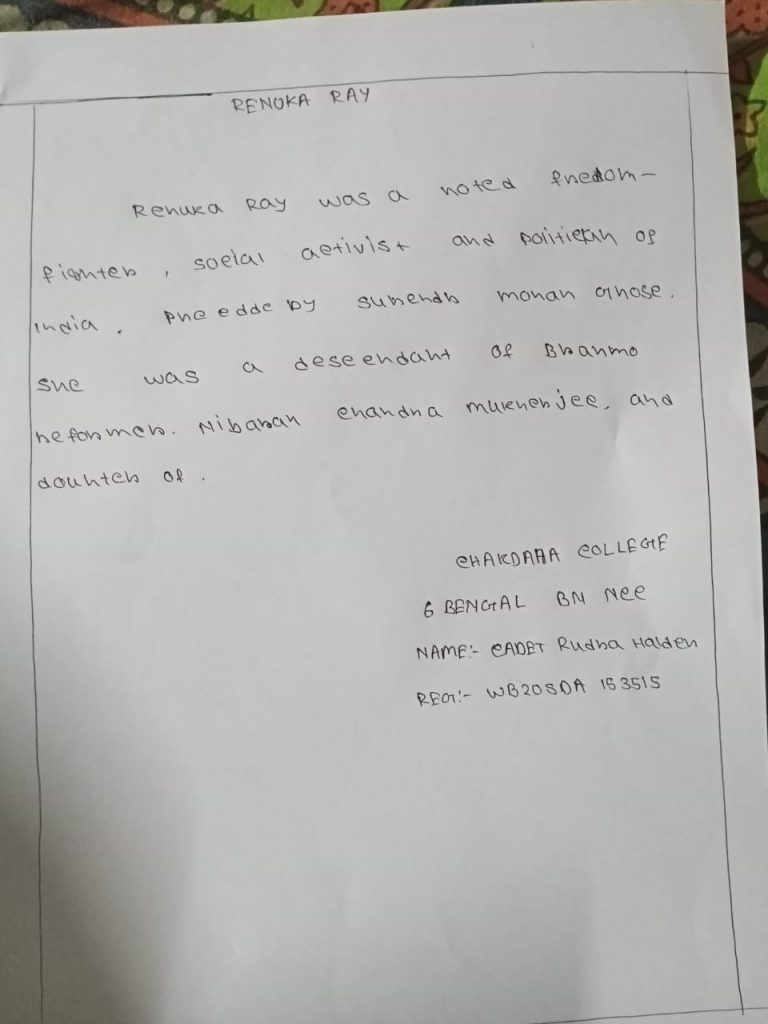 RENUKA RAY
Renuka Ray was a noted freedom-
fighter, social activist and politician of
India. Preedde by Surendr mohan Ghose.
She was a descendant of Brahmo
reformer. Nibaran chandra mukherjee, and
douhter of.
CHAKDAHA COLLEGE
6 BENGAL BN NCC
NAME:- CADET Rudra Halder
REG:- WB20SDA 153515